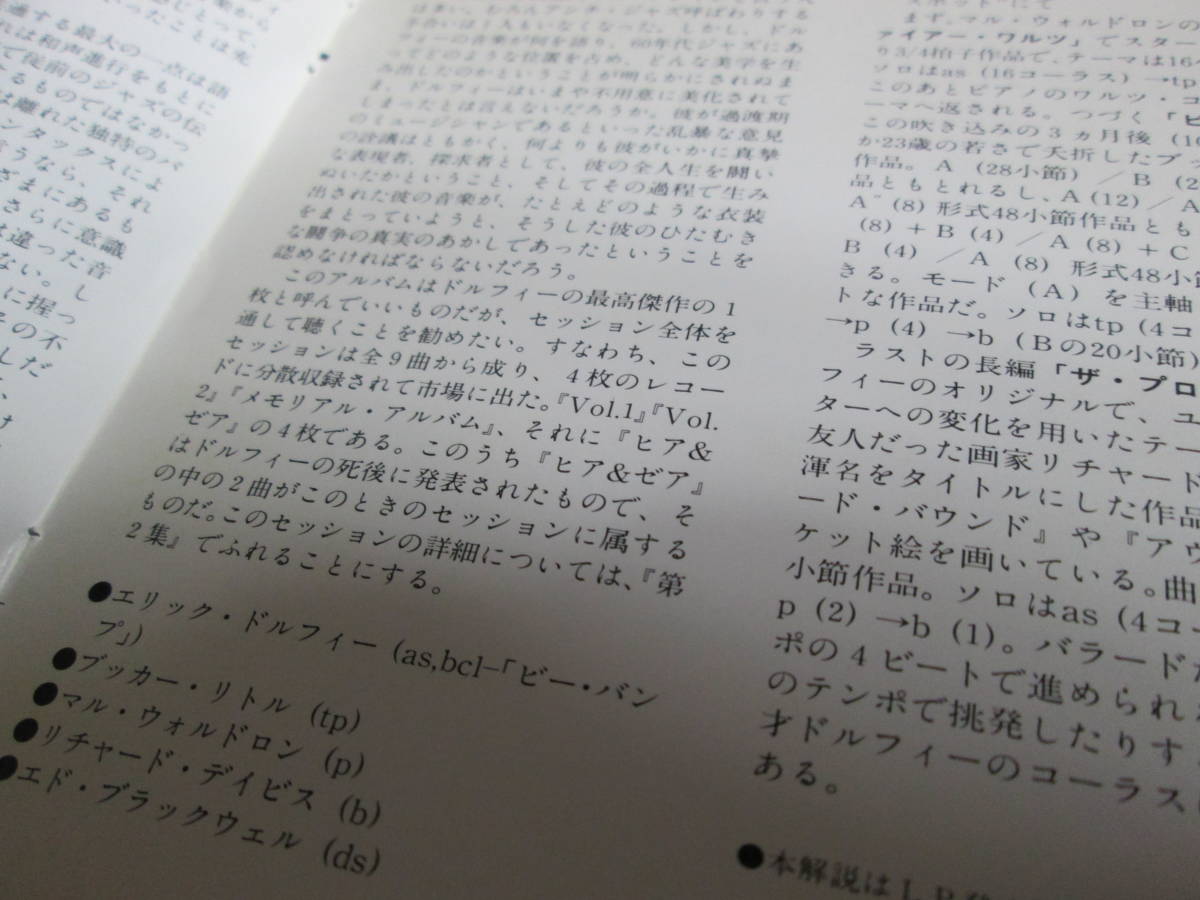 通する最大の一点は語
れは和声進行をもとに
て従前のジャズの伝
るものではなかっ
は離れた独特のバ
ンタックスによ
言うなら、それ
ざまにあるも
さらに意識
は違った音
ない。し
に握っ
その不
しだ
、
け
は多い、むろんアンチ・ジャズ呼ばわりする
手合いは1人もいなくなった。しかし、ドル
フィーの音楽が何を語り、60年代ジャズにあ
ってどのような位置を占め、どんな美学を生
み出したのかということが明らかにされぬま
ま、ドルフィーはいまや不用意に美化されて
しまったとは言えないだろうか。彼が過渡期
のミュージシャンであるといった乱暴な意見
の詮議はともかく、何よりも彼がいかに真摯
な表現者、探求者として、彼の全人生を闘い
ぬいたかということ、そしてその過程で生み
出された彼の音楽が、たとえどのような衣装
をまとっていようと、そうした彼のひたむき
な闘争の真実のあかしであったということを
認めなければならないだろう。
このアルバムはドルフィーの最高傑作の1
枚と呼んでいいものだが、セッション全体を
通して聴くことを勧めたい。すなわち、この
セッションは全9曲から成り、4枚のレコー
ドに分散収録されて市場に出た。『Vol.1』『Vol.
2』『メモリアル・アルバム』、それに『ヒア&
ゼア』の4枚である。このうち『ヒア&ゼア』
はドルフィーの死後に発表されたもので、そ
の中の2曲がこのときのセッションに属する
ものだ。このセッションの詳細については、『第
2集』でふれることにする。
●エリック・ドルフィー (as,bcl–「ビー・バン
プ」)
●ブッカー・リトル (tp)
●マル・ウォルドロン (p)
●リチャード・デイビス (b)
●エド・ブラックウェル (ds)
スポット」にて
まず、マル・ウォルドロンの
ァイアー・ワルツ」でスター
り3/4拍子作品で、テーマは16小
ソロはas (16コーラス) →tp
このあとピアノのワルツ・コ
ーマへ返される。つづく「ビ
この吹き込みの3ヵ月後 (10
か23歳の若さで夭折したブッ
作品。A (28小節) /B (2
品ともとれるし、A (12) /A
A" (8) 形式48小節作品とも
(8) + B (4) /A (8) + C
B (4) /A (8) 形式48小節
きる。モード (A) を主軸
トな作品だ。ソロはtp (4コ
→p (4) →b (Bの20小節)
ラストの長編「ザ・プロ
フィーのオリジナルで、ユ
ターへの変化を用いたテー
友人だった画家リチャード
渾名をタイトルにした作品
ード・バウンド』や『アウ
ケット絵を画いている。曲
小節作品。ソロはas (4コー
p (2) →b (1)。バラード
ポの4ビートで進められ
のテンポで挑発したりす
才ドルフィーのコーラス
ある。
●本解説はLP